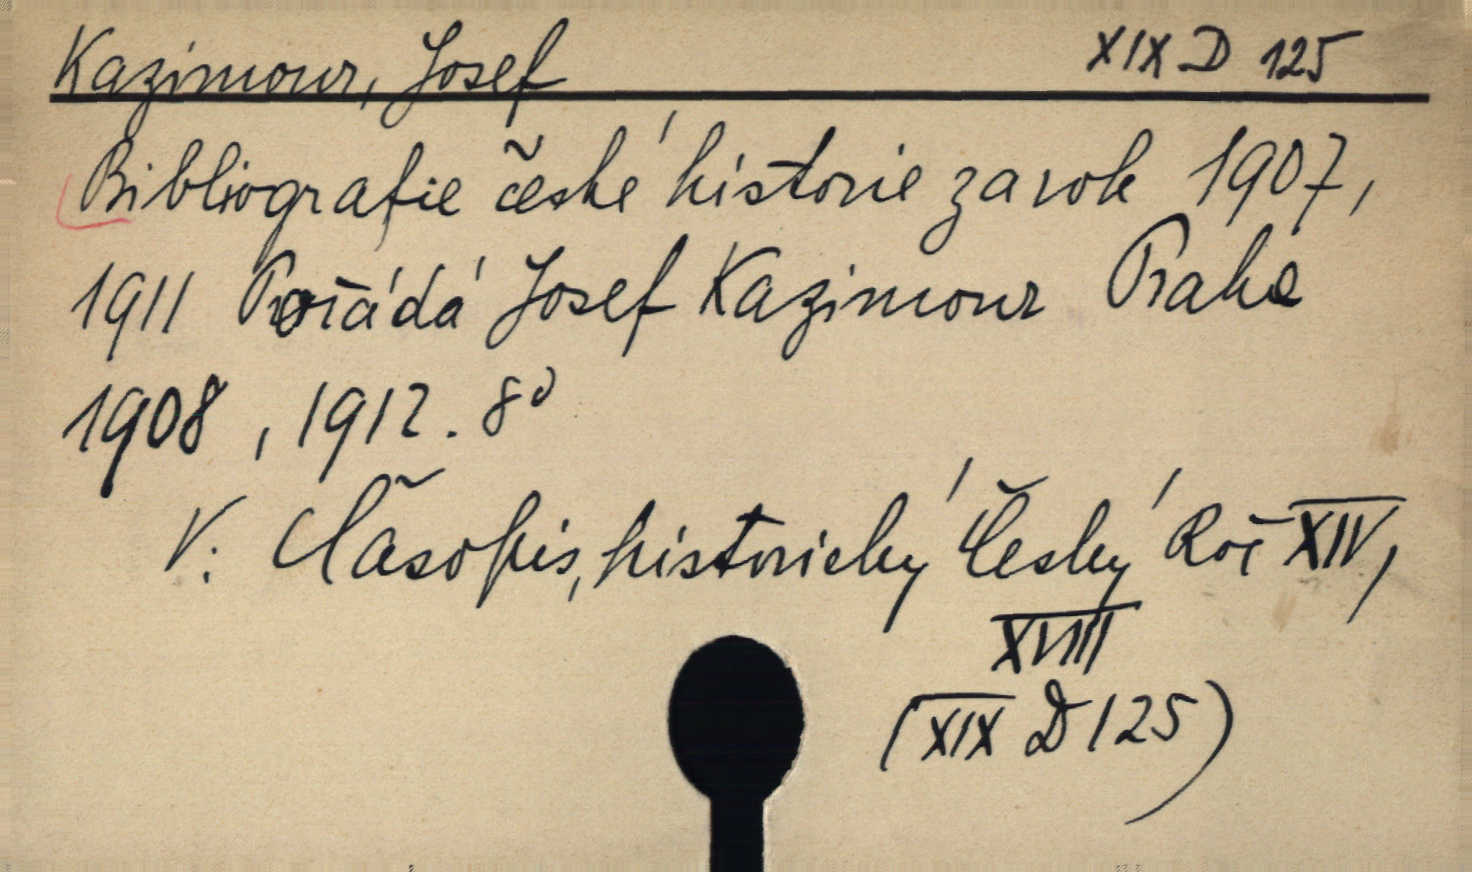 Kazimour, Josef XIX D 125
Bibliografie české historie za rok 1907,
1911 Pořádá Josef Kazimour Praha
1908, 1912. 8°
V: Časopis, historický Český Roč XIV,
XVIII
(XIX D 125)